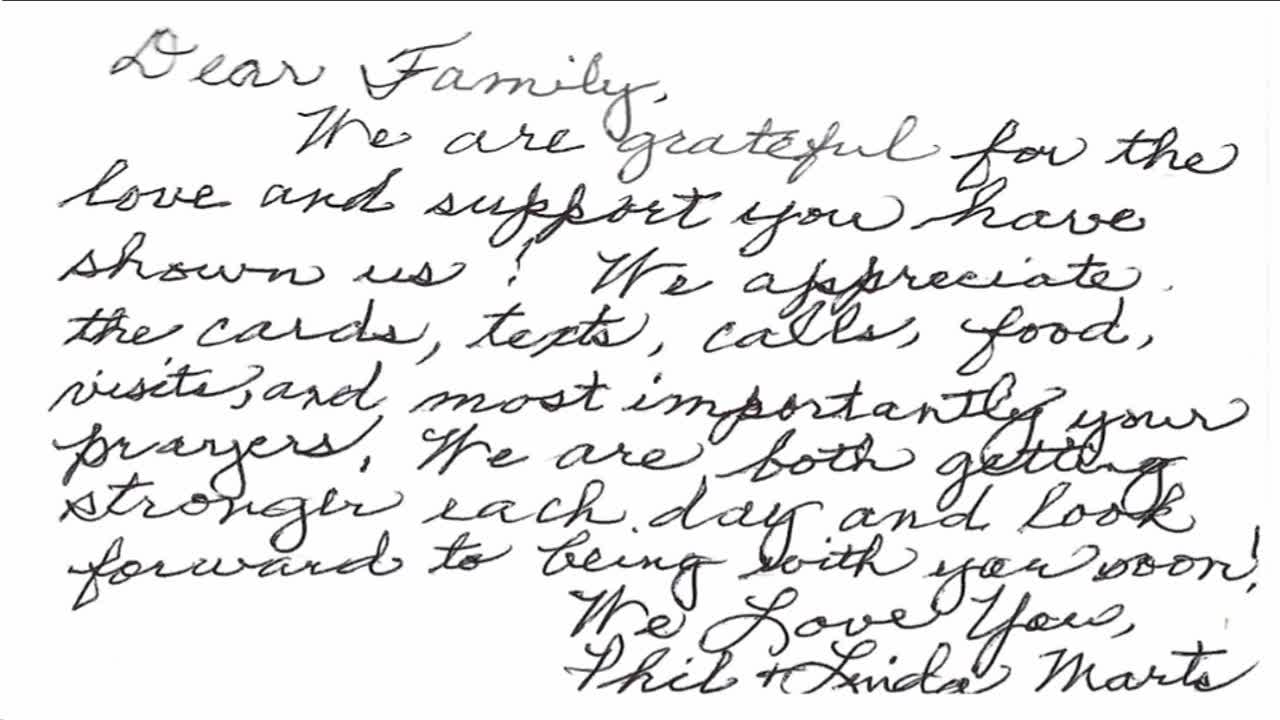 Dear Family,
We are grateful for the
love and support you have
shown us! We appreciate
the cards, texts, calls, food,
visits, and most importantly your
prayers. We are both getting
stronger each day and look
forward to being with you soon!
We Love You,
Phil + Linda Marts